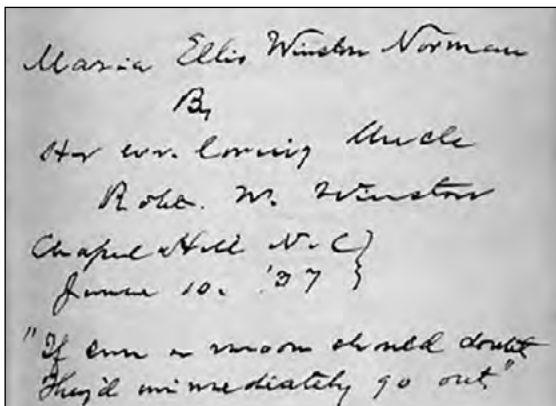 Maria Ellis Winston Norman
By
Her ever loving Uncle
Robt. W. Winston
Chapel Hill N.C}
June 10. '37 }
"If sun & moon should doubt
They'd immediately go out"